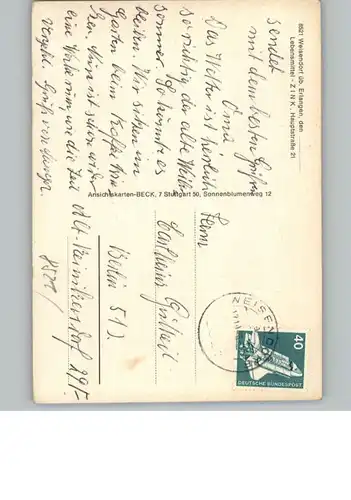 8521 Weisendorf üb. Erlangen, den
Lebensmittel - ZINK - Hauptstraße 21
sendet
mit dem besten Grüßen
Oma
Das Wetter ist herrlich
So richtig der alte Weiber
Sommer. So könnte es
bleiben. Wir sitzen im
Garten beim Kaffe
ist schon wieder
eine Woche um wie die Zeit
vergeht. Gruß von
Ansichtskarten-BECK, 7 Stuttgart 50, Sonnenblumenweg 12
Herrn
Berlin 51
Alt-Reinikendorf 29
8521
40
DEUTSCHE BUNDESPOST